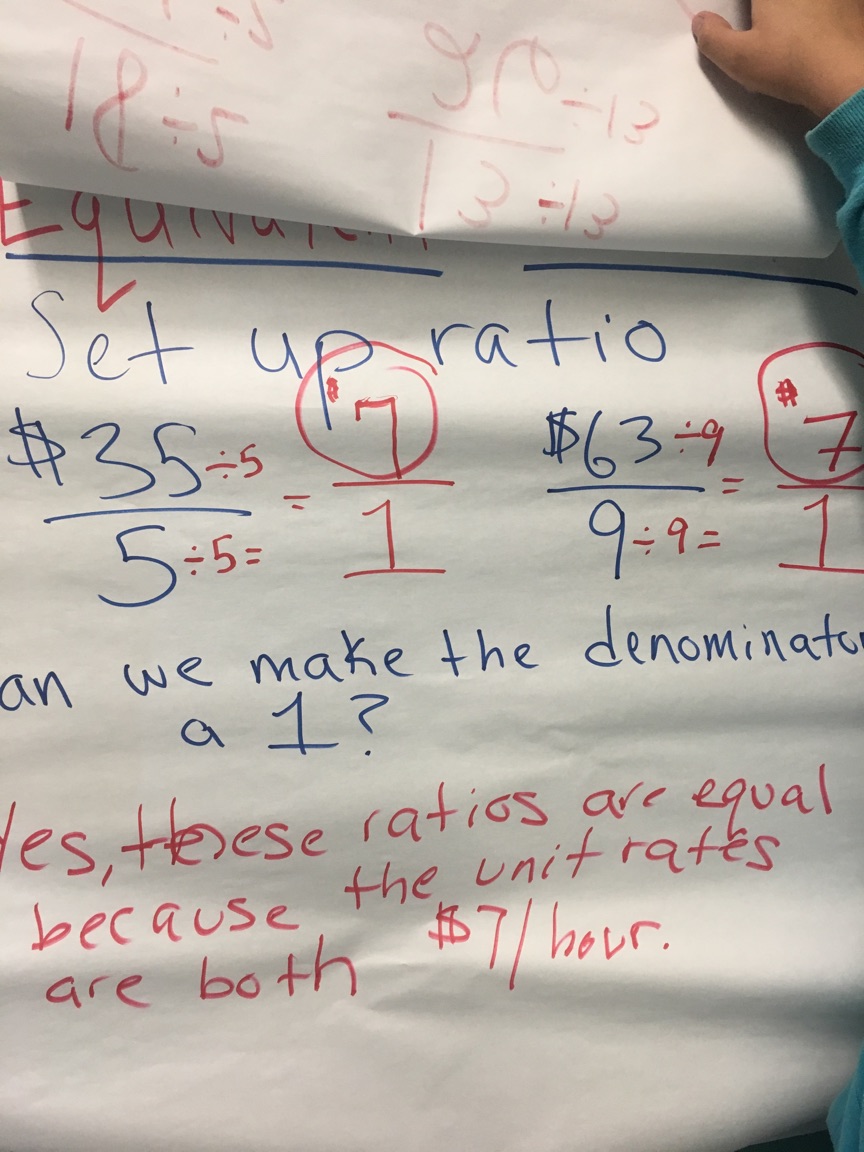 ÷5
18 ÷5
90 ÷13
13 ÷13
Equivalent
Set up ratio
$35 ÷5 = $7
5 ÷5 = 1
$63 ÷9 = $7
9 ÷9 = 1
an we make the denominato
a 1?
Yes, these ratios are equal
because the unit rates
are both $7/hour.